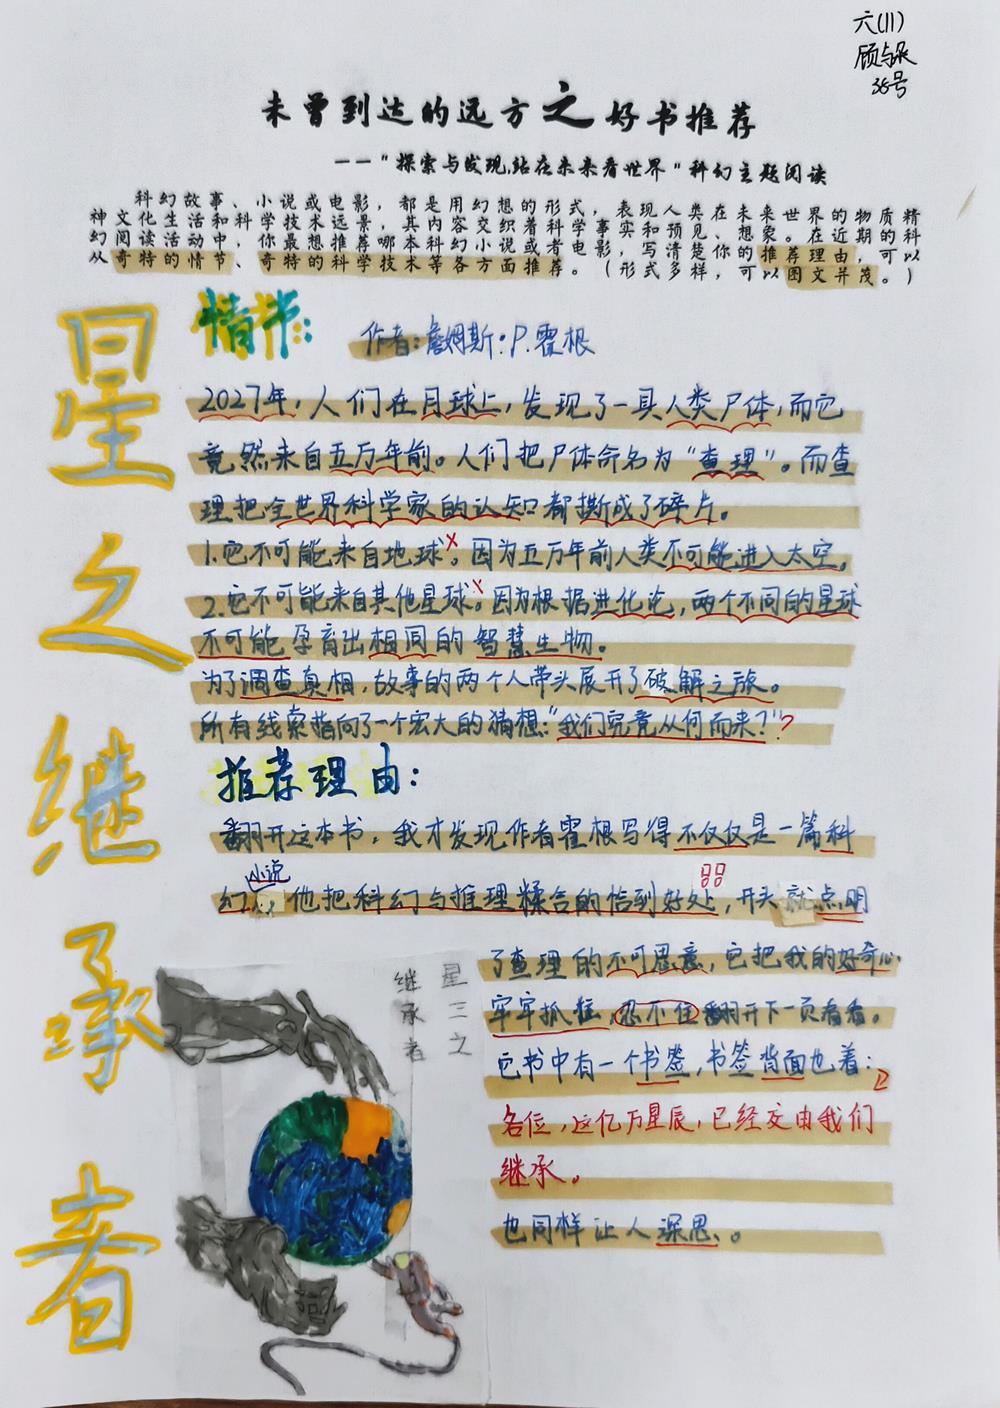 六(11)
顾与朵
38号
未曾到达的远方之好书推荐
——"探索与发现,站在未来看世界"科幻主题阅读
科幻故事、小说或电影，都是用幻想的形式，表现人类在未来世界的物质精
神文化生活和科学技术远景，其内容交织着科学事实和预见、想象。在近期的科
幻阅读活动中，你最想推荐哪本科幻小说或者电影，写清楚你的推荐理由，可以
从奇特的情节、奇特的科学技术等各方面推荐。（形式多样，可以图文并茂。）
星之继承者
情节：
作者：詹姆斯·P.霍根
2027年，人们在月球上，发现了一具人类尸体，而它
竟然来自五万年前。人们把尸体命名为“查理”。而查
理把全世界科学家的认知都撕成了碎片。
1.它不可能来自地球×。因为五万年前人类不可能进入太空。
2.它不可能来自其他星球×。因为根据进化论，两个不同的星球
不可能孕育出相同的智慧生物。
为了调查真相，故事的两个人带头展开了破解之旅。
所有线索指向了一个宏大的猜想：“我们究竟从何而来？”？
推荐理由：
翻开这本书，我才发现作者霍根写得不仅仅是一篇科
幻小说，他把科幻与推理糅合的恰到好处，开头就点明
了查理的不可思意，它把我的好奇心
牢牢抓住，忍不住翻开下一页看看。
它书中有一个书签，书签背面也着：
各位，这亿万星辰，已经交由我们
继承。
也同样让人深思。
星三之
继承者